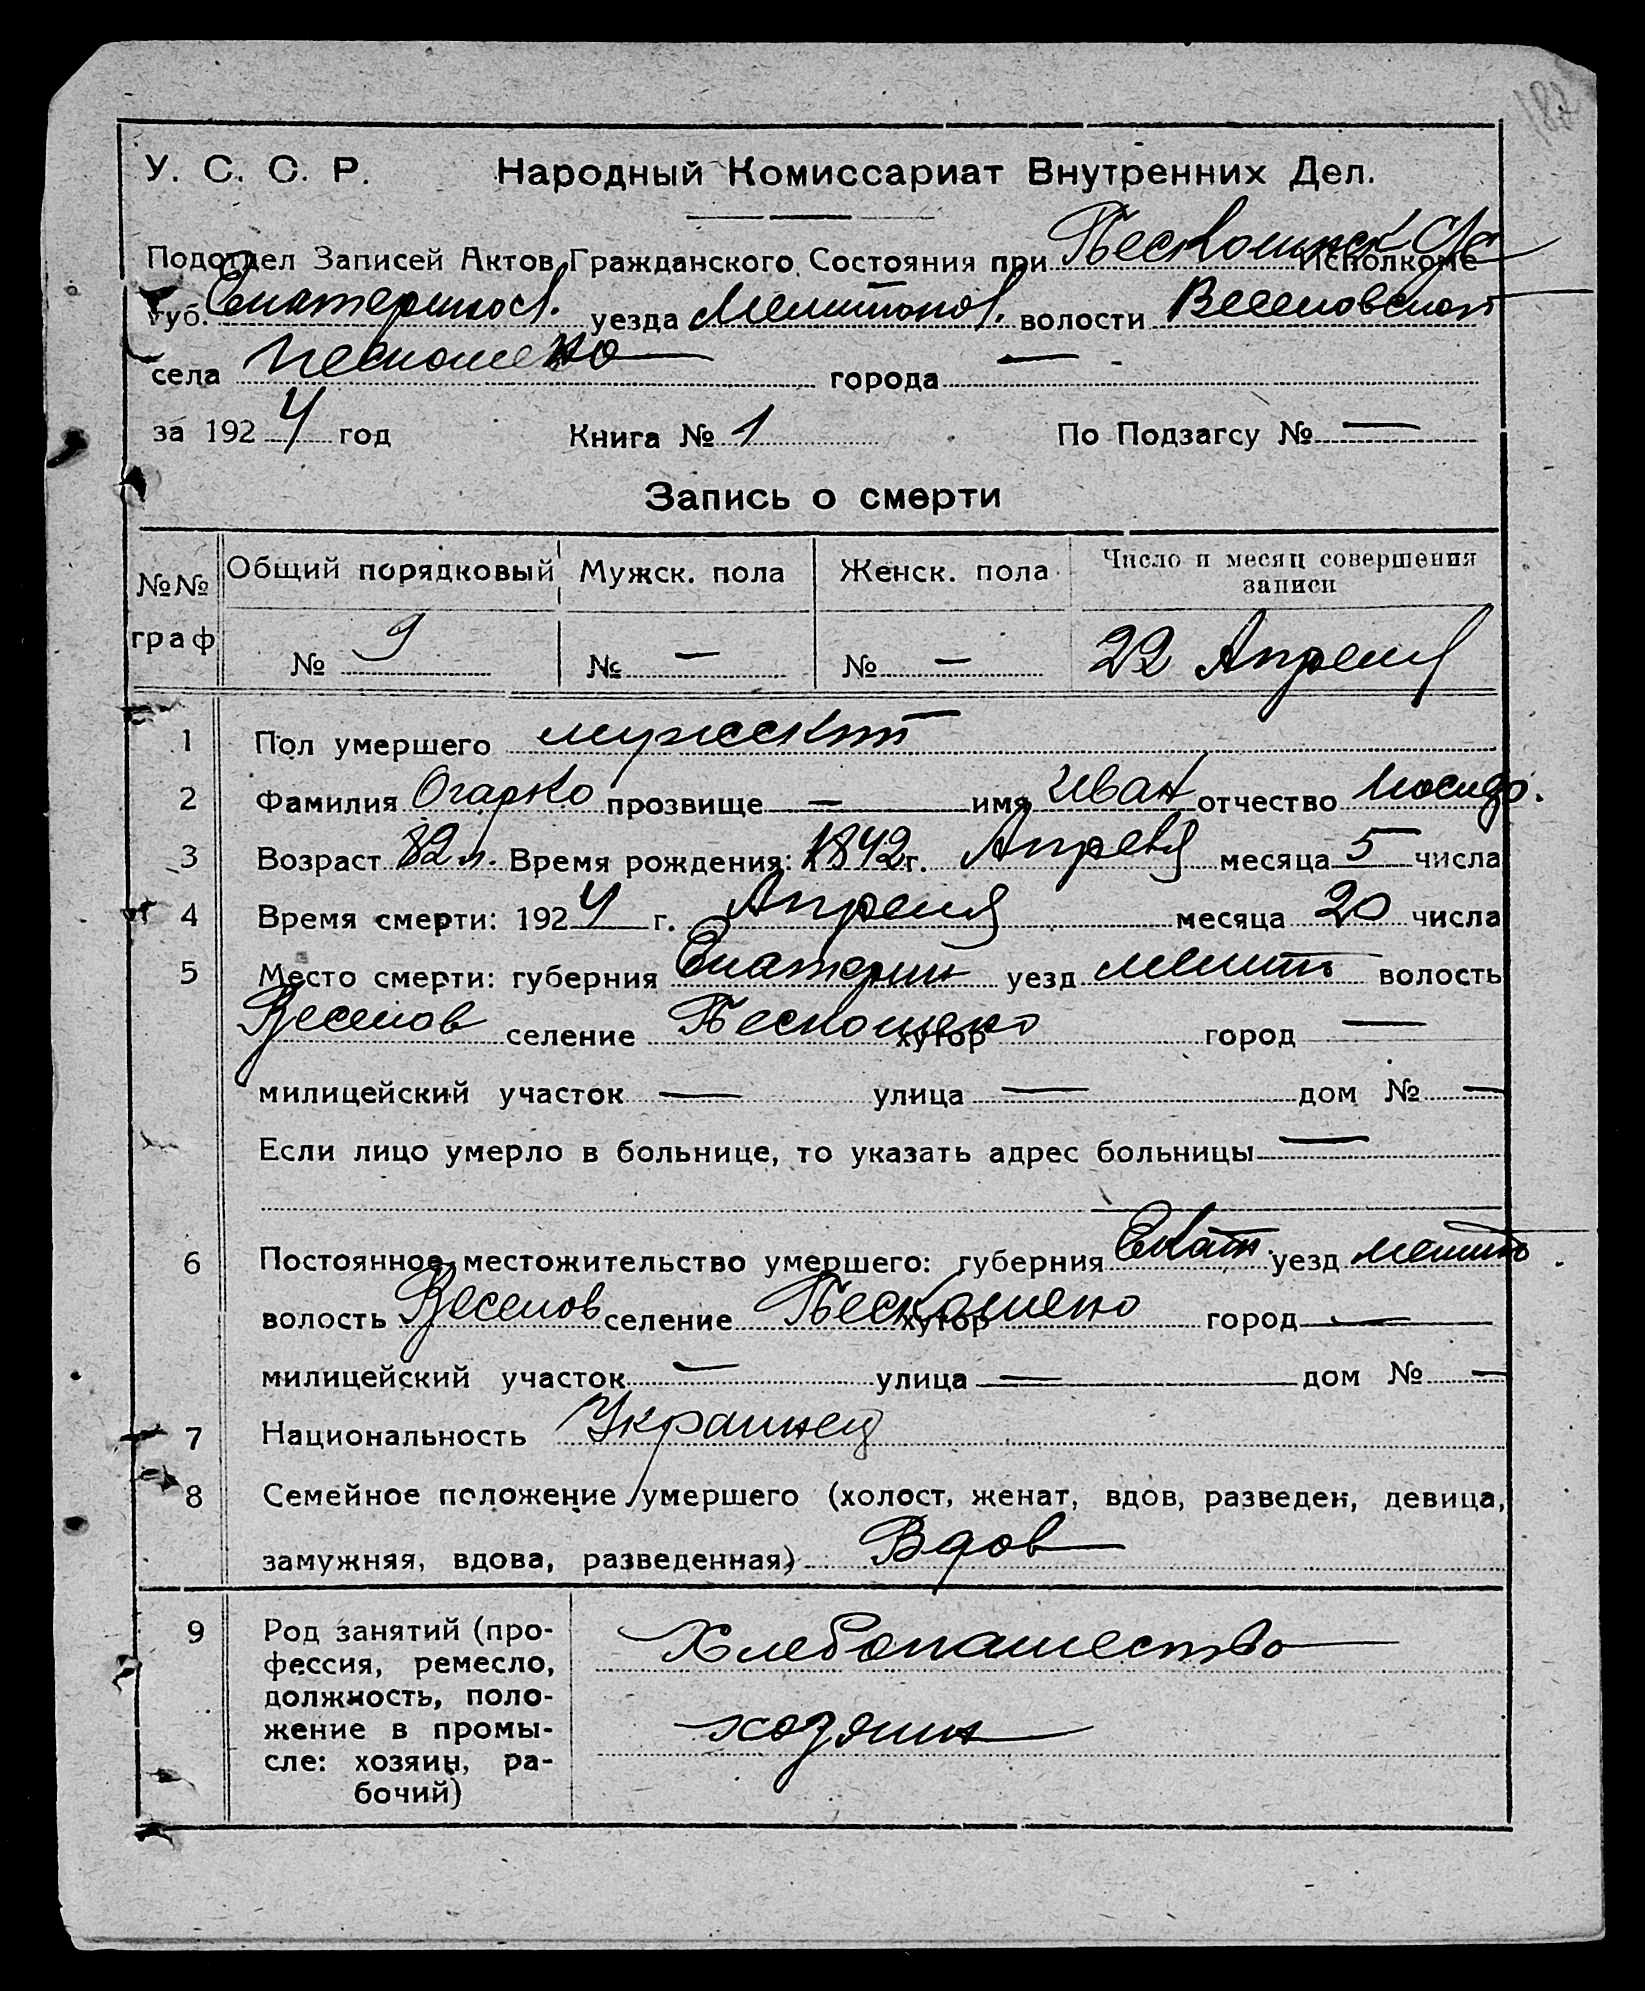 У. С. С. Р. Народный Комиссариат Внутренних Дел.
Подотдел Записей Актов Гражданского Состояния при Исполкоме
губ. Екатериносл. уезда Мелитопол. волости Веселовской
села города —
за 1924 год Книга № 1 По Подзагсу № —
Запись о смерти
№№ граф Общий порядковый Мужск. пола Женск. пола Число и месяц совершения записи
№ 9 № — № — 22 Апреля
1 Пол умершего мужской
2 Фамилия Огарко прозвище — имя Иван отчество
3 Возраст 82 л. Время рождения: 1842 г. Апреля месяца 5 числа
4 Время смерти: 1924 г. Апреля месяца 20 числа
5 Место смерти: губерния Екатерин уезд Мелит волость
Веселов селение хутор город —
милицейский участок — улица — дом № —
Если лицо умерло в больнице, то указать адрес больницы —
6 Постоянное местожительство умершего: губерния Екат. уезд Мелит
волость Веселов селение хутор город —
милицейский участок — улица — дом № —
7 Национальность Украинец
8 Семейное положение умершего (холост, женат, вдов, разведен, девица,
замужняя, вдова, разведенная) Вдов
9 Род занятий (про-
фессия, ремесло,
должность, поло-
жение в промы-
сле: хозяин, ра-
бочий)
Хлебопашество
хозяин